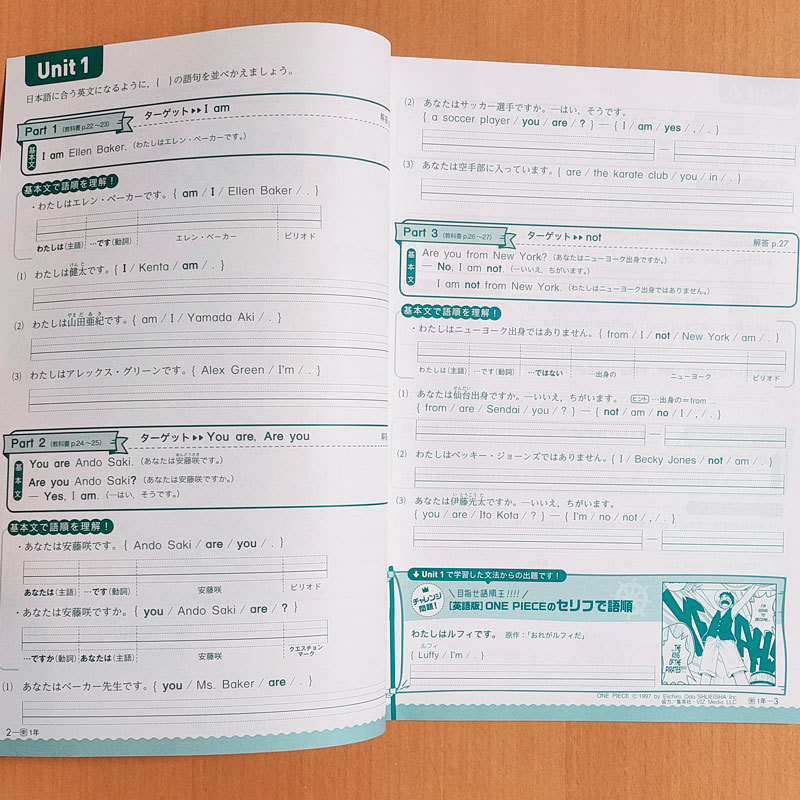 Unit 1
日本語に合う英文になるように，{ }の語句を並べかえましょう。
Part 1 (教科書 p.22～23) ターゲット▸▸I am
基本文
I am Ellen Baker.（わたしはエレン・ベーカーです。）
基本文で語順を理解！
・わたしはエレン・ベーカーです。{ am / I / Ellen Baker / . }
わたしは(主語) …です(動詞) エレン・ベーカー ピリオド
(1) わたしは健太です。{ I / Kenta / am / . }
(2) わたしは山田亜紀です。{ am / I / Yamada Aki / . }
(3) わたしはアレックス・グリーンです。{ Alex Green / I'm / . }
Part 2 (教科書 p.24～25) ターゲット▸▸You are, Are you
基本文
You are Ando Saki.（あなたは安藤咲です。）
Are you Ando Saki?（あなたは安藤咲ですか。）
— Yes, I am.（—はい，そうです。）
基本文で語順を理解！
・あなたは安藤咲です。{ Ando Saki / are / you / . }
あなたは(主語) …です(動詞) 安藤咲 ピリオド
・あなたは安藤咲ですか。{ you / Ando Saki / are / ? }
…ですか(動詞) あなたは(主語) 安藤咲 クエスチョンマーク
(1) あなたはベーカー先生です。{ you / Ms. Baker / are / . }
2—東 1年
(2) あなたはサッカー選手ですか。—はい，そうです。
{ a soccer player / you / are / ? } — { I / am / yes / , / . }
(3) あなたは空手部に入っています。{ are / the karate club / you / in / . }
Part 3 (教科書 p.26～27) ターゲット▸▸not 解答 p.27
基本文
Are you from New York?（あなたはニューヨーク出身ですか。）
— No, I am not.（—いいえ，ちがいます。）
I am not from New York.（わたしはニューヨーク出身ではありません。）
基本文で語順を理解！
・わたしはニューヨーク出身ではありません。{ from / I / not / New York / am / . }
わたしは(主語) …です(動詞) …ではない …出身の ニューヨーク ピリオド
(1) あなたは仙台出身ですか。—いいえ，ちがいます。 ヒント …出身の＝from …
{ from / are / Sendai / you / ? } — { not / am / no / I / , / . }
(2) わたしはベッキー・ジョーンズではありません。{ I / Becky Jones / not / am / . }
(3) あなたは伊藤光太ですか。—いいえ，ちがいます。
{ you / are / Ito Kota / ? } — { I'm / no / not / , / . }
Unit 1で学習した文法からの出題です！
チャレンジ問題！
目指せ語順王!!!!
[英語版] ONE PIECEのセリフで語順
わたしはルフィです。 原作：「おれがルフィだ」
ルフィ
{ Luffy / I'm / . }
I'M GOING TO BECOME...
...THE KING OF THE PIRATES!!!!
ONE PIECE © 1997 by Eiichiro Oda/SHUEISHA Inc.
協力／集英社・VIZ Media LLC.
東 1年—3